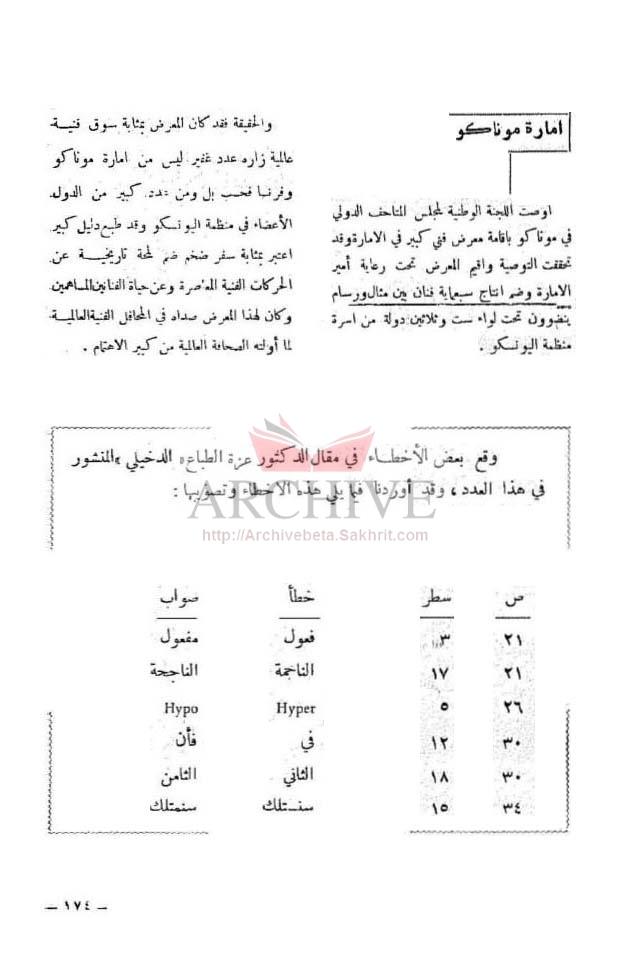 امارة موناكو
اوصت اللجنة الوطنية لمجلس المتاحف الدولي
في موناكو باقامة معرض فني كبير في الامارة وقد
تحققت التوصية واقيم المعرض تحت رعاية أمير
الامارة وضم انتاج سبعماية فنان بين مثال ورسام
ينضوون تحت لواء ست وثلاثين دولة من اسرة
منظمة اليونسكو .
والحقيقة فقد كان المعرض بمثابة سوق فنية
عالمية زاره عدد غفير ليس من امارة موناكو
وفرنسا فحسب بل ومن عدد كبير من الدول
الأعضاء في منظمة اليونسكو وقد طبع دليل كبير
اعتبر بمثابة سفر ضخم ضم لمحة تاريخية عن
الحركات الفنية المعاصرة وعن حياة الفنانين المساهمين
وكان لهذا المعرض صداه في المحافل الفنية العالمية
لما أولته الصحافة العالمية من كبير الاهتمام .
وقع بعض الأخطاء في مقال الدكتور عزة الطباع « الدخيلي » المنشور
في هذا العدد ، وقد أوردنا فيما يلي هذه الاخطاء وتصويبها :
ARCHIVE
http://Archivebeta.Sakhrit.com
ص سطر خطأ صواب
٢١ ٣ فعول مفعول
٢١ ١٧ الناخجة الناجحة
٢٦ ٥ Hyper Hypo
٣٠ ١٢ في فأن
٣٠ ١٨ الثاني الثامن
٣٤ ١٥ سنستلك سنمتلك
— ١٧٤ —